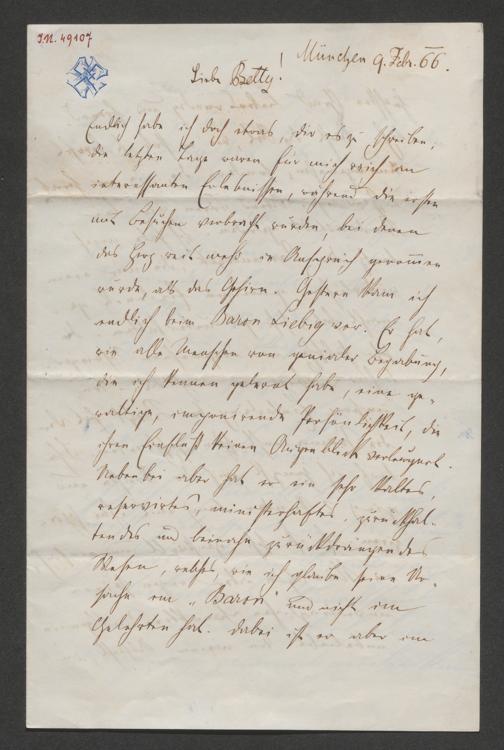 J.N. 49107
München 9. Febr. 66.
Liebe Betty!
Endlich habe ich doch etwas, dir es zu schreiben,
die letzten Tage waren für mich reich an
interessanten Erlebnissen, während die ersten
mit Besuchen verbracht wurden, bei denen
das Herz weit mehr in Anspruch genommen
wurde, als das Gehirn. Gestern kam ich
endlich beim Baron Liebig vor. Er hat,
wie alle Menschen von genialer Begabung,
die ich kennen gelernt habe, eine ge-
waltige, imponirende Persönlichkeit, die
ihren Einfluß keinen Augenblick verleugnet.
Nebenbei aber hat er ein sehr kaltes,
reservirtes, ministerhaftes, zurückhal-
tendes und beinahe zurückdrängendes
Wesen, welches wie ich glaube seine Ur-
sache im "Baron" und nicht im
Gelehrten hat. Dabei ist er aber ein